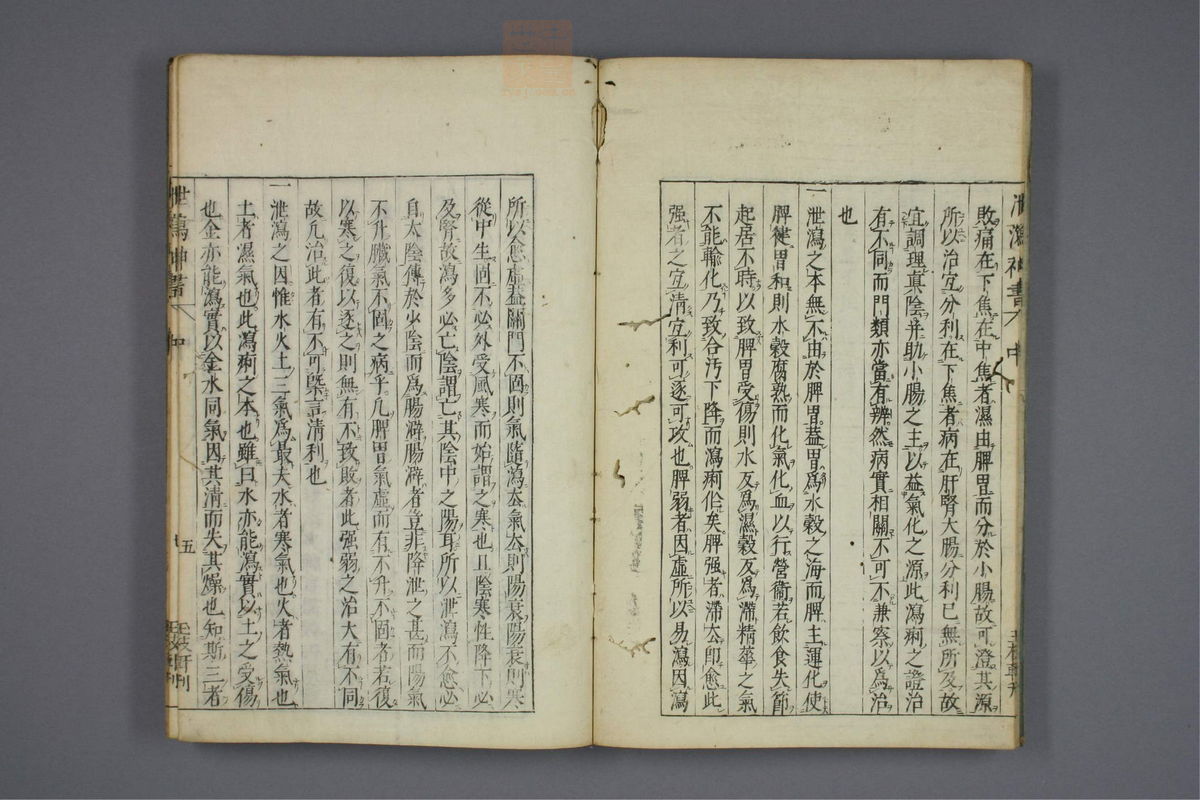 泄瀉神書 中
敗痛在下焦在中焦者濕由脾胃而分於小腸故可澄其源
所以治宜分利在下焦者病在肝腎大腸分利已無所及故
宜調理真陰并助小腸之主以益氣化之源此瀉痢之證治
有不同而門類亦當有辨然病實相關不可不兼察以為治
也
一泄瀉之本無不由於脾胃蓋胃為水穀之海而脾主運化使
脾健胃和則水穀腐熟而化氣化血以行營衞若飲食失節
起居不時以致脾胃受傷則水反為濕穀反為滯精華之氣
不能輸化乃致合汚下降而瀉痢作矣脾强者滯去即愈此
强者之宜清宜利可逐可攻也脾弱者因虛所以易瀉因瀉
所以愈虛蓋關門不固則氣隨瀉去氣去則陽衰陽衰則寒
從中生固不必外受風寒而始謂之寒也且陰寒性降下必
及腎故瀉多必亡陰謂亡其陰中之陽耳所以泄瀉不愈必
自太陰傳於少陰而為腸澼腸澼者豈非降泄之甚而陽氣
不升臟氣不固之病乎凡脾胃氣虛而有不升不固者若復
以寒之復以逐之則無有不致敗者此强弱之治大有不同
故凢治此者有不可槩言清利也
一泄瀉之因惟水火土三氣為最夫水者寒氣也火者熱氣也
土者濕氣也此瀉痢之本也雖曰水亦能瀉實以土之受傷
也金亦能瀉實以金水同氣因其清而失其燥也知斯三者
神書 中
五